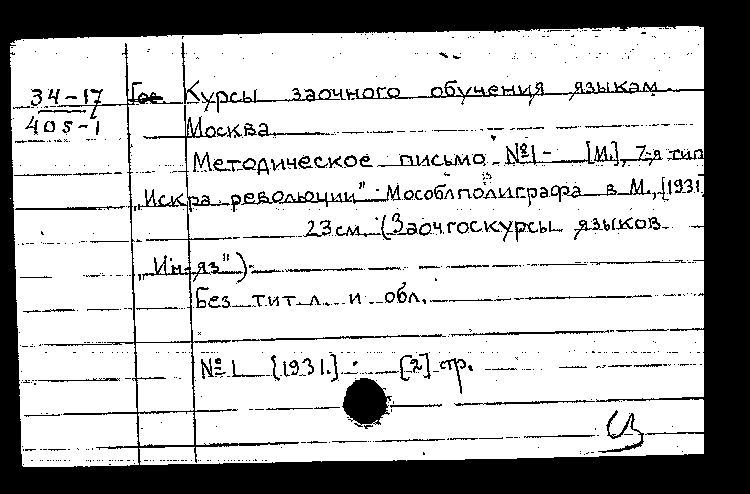 34-17 Курсы заочного обучения языкам.
405-1 Москва.
Методическое письмо. №1- [М.], 7-я тип
„Искра революции" Мособлполиграфа в М., [1931]
23 см. (Заочгоскурсы языков
„Ин-яз").
Без тит. л. и обл.
№1 [1931.] · [2] стр.